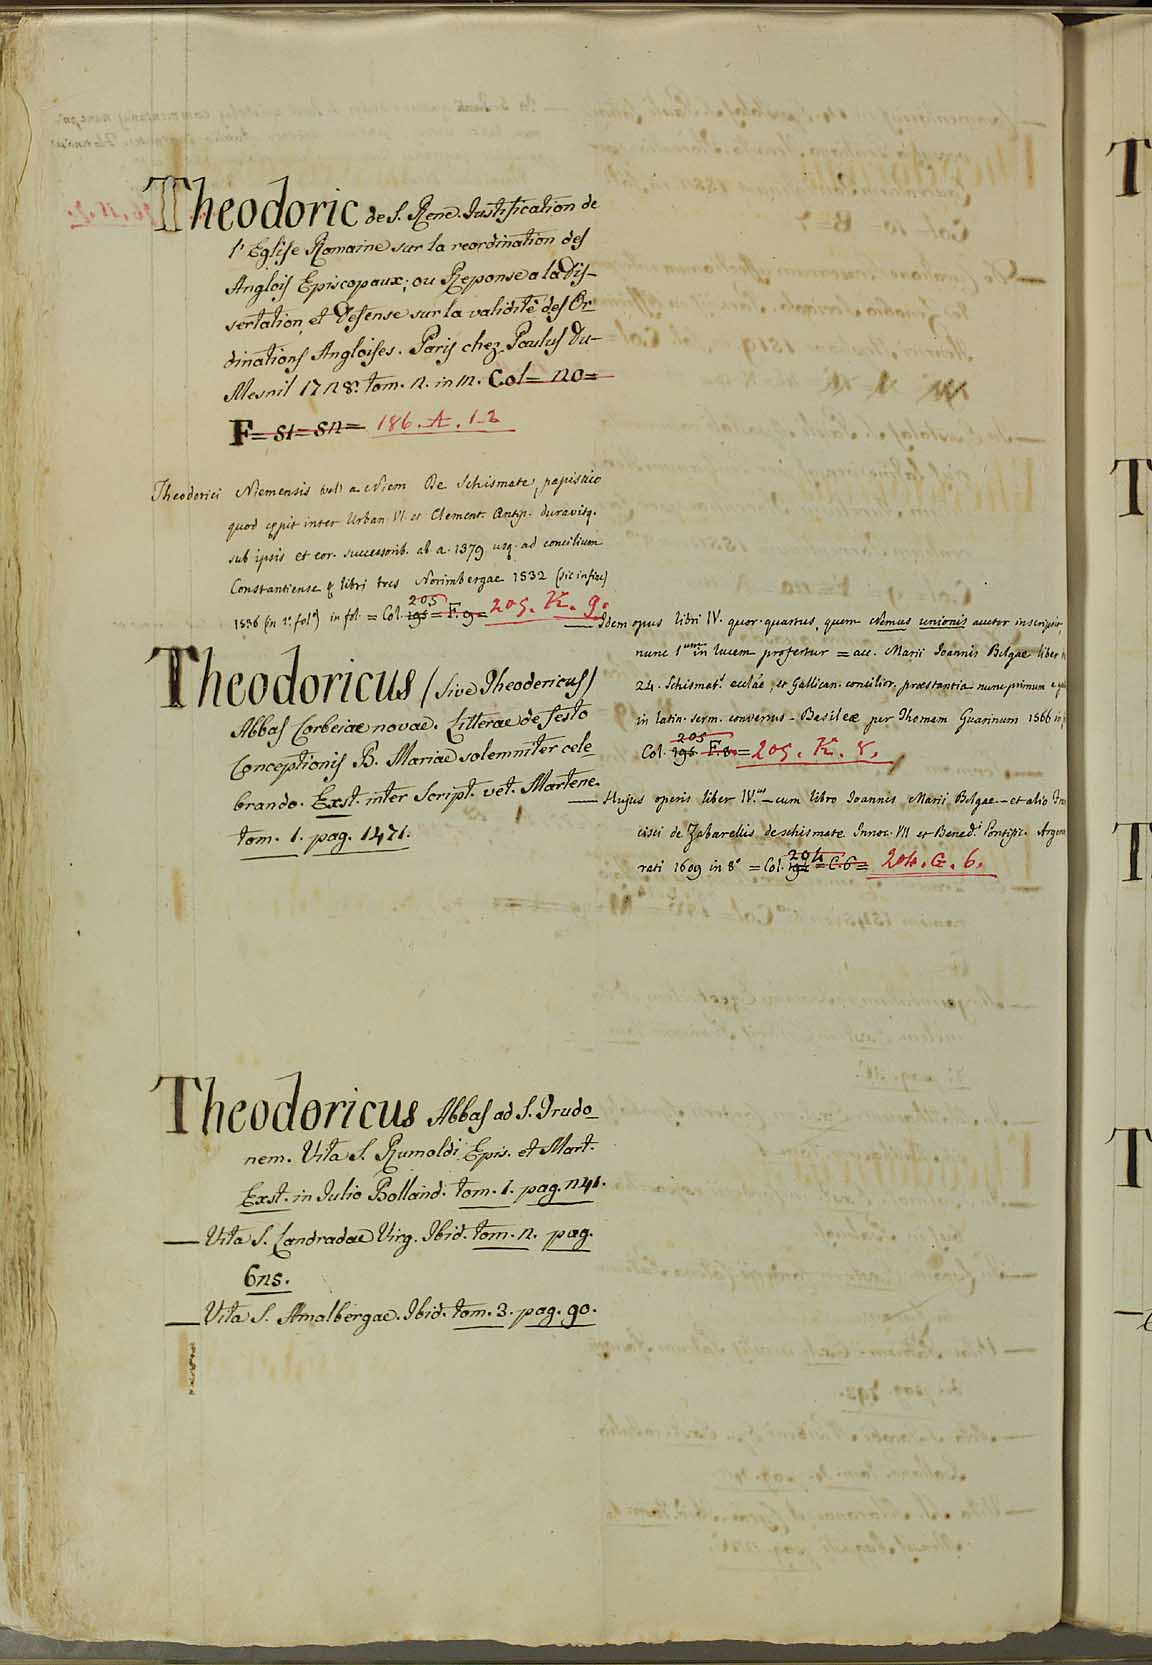 Theodoric de S. Rene. Justification de
l'Eglise Romaine sur la reordination des
Anglois Episcopaux; ou Reponse a la Dis-
sertation, et Defense sur la validité des Or
dinations Angloises. Paris chez Paulus Du-
Mesnil 1728. tom. 2. in 12. Col= 20=
F= 51= 52= 186. A. 1-2
Theodorici Niemensis vel a Niem De Schismate papistico
quod cępit inter Urban. VI. et Clement. Antip. duravitq.
sub ipsis et eor. successorib. ab a. 1379. usq. ad concilium
Constantiense libri tres Norimbergae 1532 (sic in fine)
1536 (in 1º. folº) in fol. = Col. 195 205 = F. 9 = 205. K. 9.
Theodoricus (sive Theodericus)
Abbas Corbeiae novae. Litterae de festo
Conceptionis B. Mariae solemniter cele
brando. Exst. inter Script. vet. Martene.
tom. 1. pag. 1471.
Theodoricus Abbas ad S. Trudo
nem. Vita S. Rumoldi Epis. et Mart.
Exst. in Julio Bolland. tom. 1. pag. 241.
— Vita S. Landradae Virg. Ibid. tom. 2. pag.
625.
— Vita S. Amalbergae. Ibid. tom. 3. pag. 90.
— Idem opus libri IV. quor. quartus, quem Nemus unionis auctor inscripsit,
nunc 1um in lucem profertur = acc. Marii Joannis Belgae liber
24. Schismat. ecclae, et Gallican. concilior. praestantia nunc primum
in latin. serm. conversus - Basileae per Thomam Guarinum 1566 in
Col. 195 205 F. 8. = 205. K. 8.
— Hujus operis liber IV.us — cum libro Joannis Marii Belgae — et alio Fran
cisci de Zabarellis de schismate Innoc. VII et Bened. Pontifi. Argen
rati 1609 in 8º = Col. 194 204 = C. 6 = 204. G. 6.
T
T
T
T